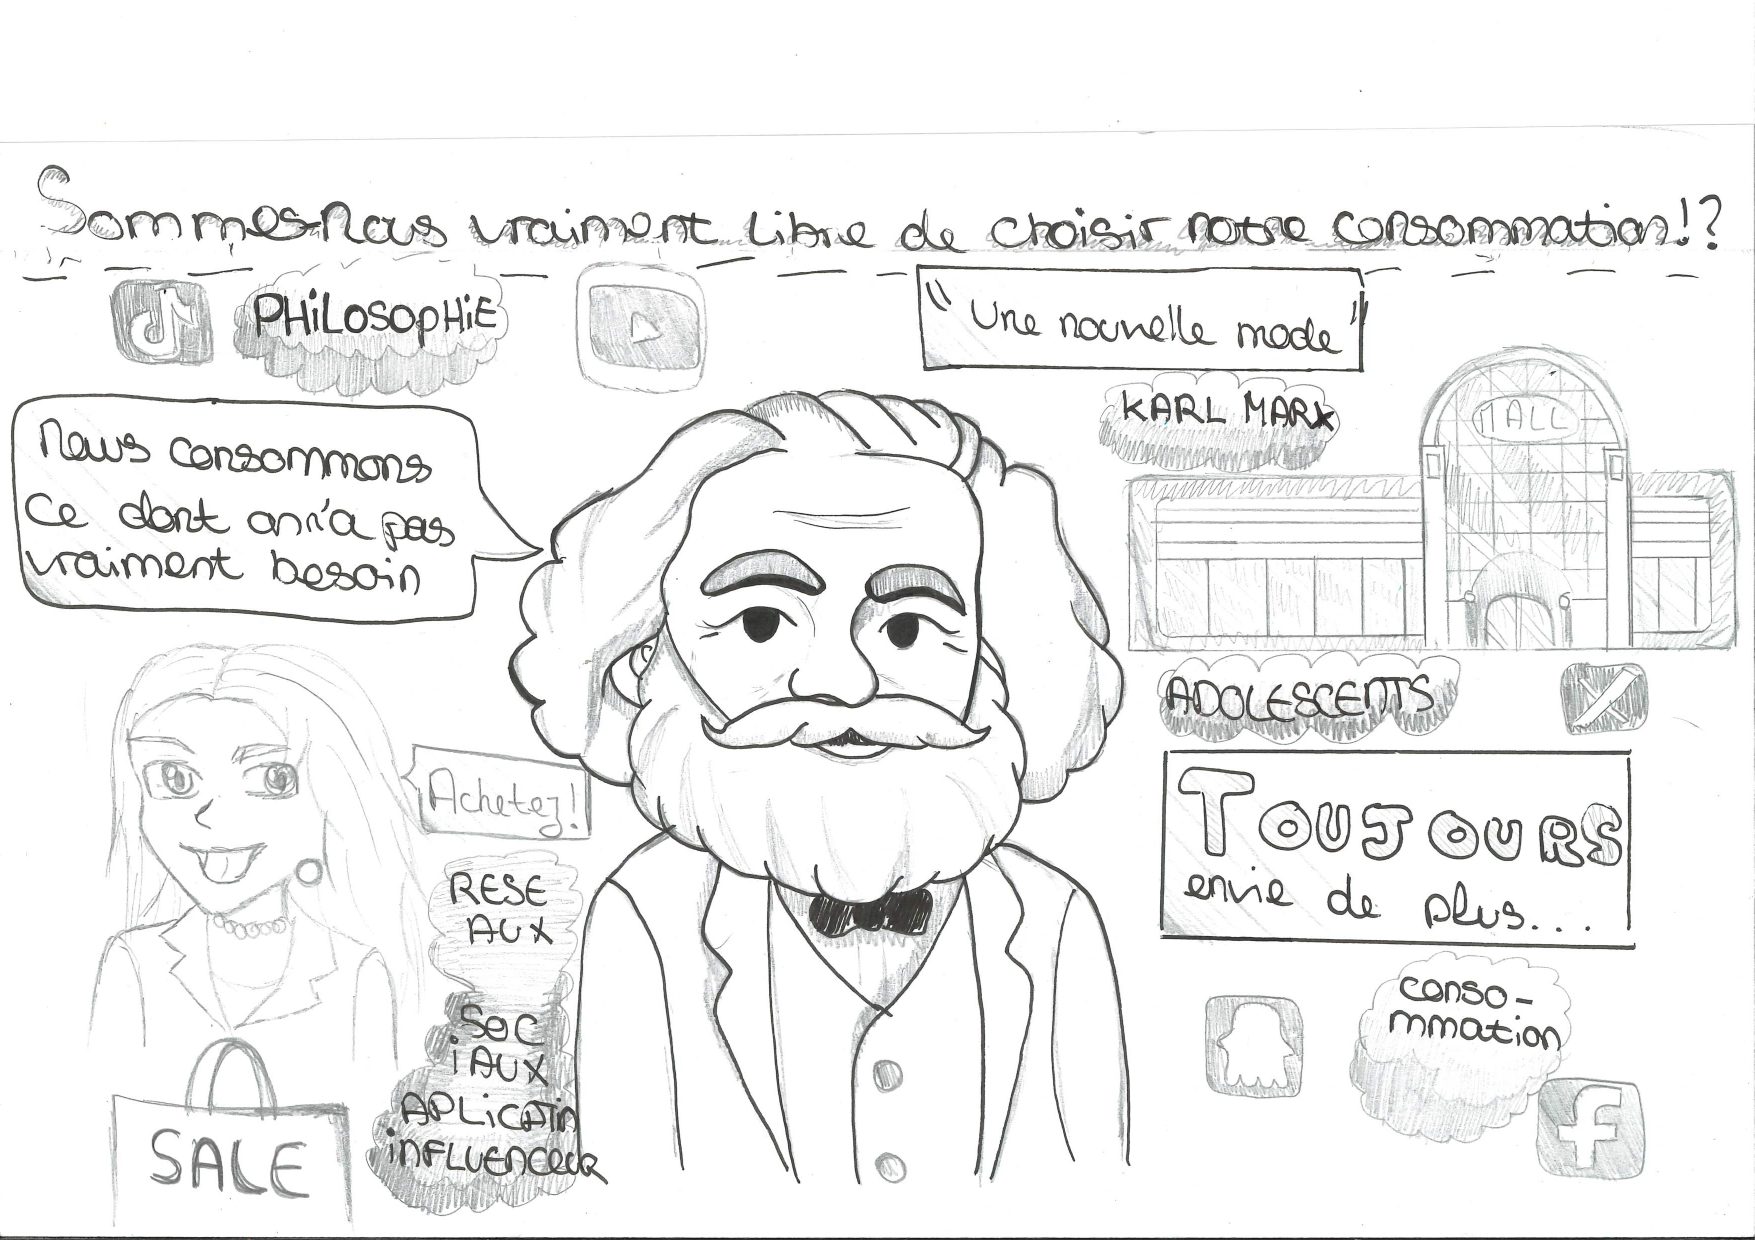 Sommes-Nous vraiment libre de choisir notre consommation!?
PHiLOSOPHiE
"Une nouvelle mode"
KARL MARX
MALL
Nous consommons
Ce dont on n'a pas
vraiment besoin
ADOLESCENTS
X
Achetez!
TOUJOURS
envie de plus...
RESE
AUX
SOC
iAUX
APLiCATiN
iNFLUENCEUR
SALE
conso-
mmation
f